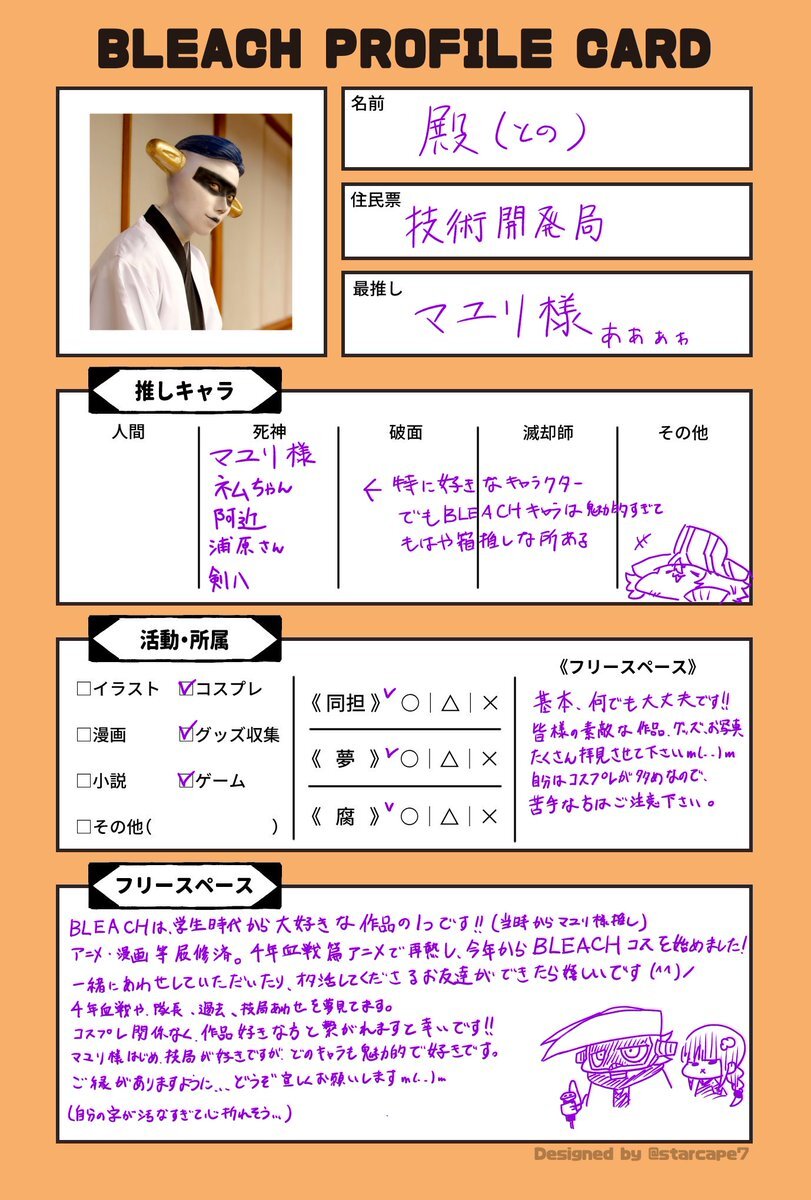 BLEACH PROFILE CARD
名前
殿(との)
住民票
技術開発局
最推し
マユリ様ぁぁぁゎ
推しキャラ
人間 死神 破面 滅却師 その他
マユリ様
ネムちゃん
阿近
浦原さん
剣八
← 特に好きなキャラクター
でもBLEACHキャラは魅力的すぎて
もはや箱推しな所ある
活動・所属
□イラスト ☑コスプレ
□漫画 ☑グッズ収集
□小説 ☑ゲーム
□その他( )
《同担》✓○|△|×
《夢》✓○|△|×
《腐》✓○|△|×
《フリースペース》
基本、何でも大丈夫です!!
皆様の素敵な作品、グッズ、お写真
たくさん拝見させて下さいm(..)m
自分はコスプレが多めなので、
苦手な方はご注意下さい。
フリースペース
BLEACHは、学生時代から大好きな作品の1つです!!(当時からマユリ様推し)
アニメ・漫画等履修済。千年血戦篇アニメで再熱し、今年からBLEACHコスを始めました!
一緒にあわせしていただいたり、オタ活してくださるお友達ができたら嬉しいです(^^)ノ
千年血戦や、隊長、過去、技局あわせを夢見てます。
コスプレ関係なく、作品好きな方と繋がれますと幸いです!!
マユリ様はじめ、技局が好きですが、どのキャラも魅力的で好きです。
ご縁がありますように...どうぞ宜しくお願いしますm(..)m
(自分の字が汚なすぎて心折れそう...)
Designed by @starcape7